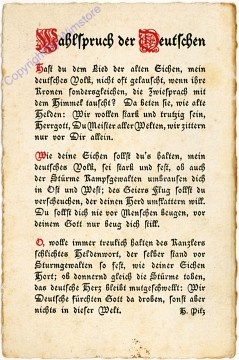 Wahlspruch der Deutschen
Hast du dem Lied der alten Eichen, mein
deutsches Volk, nicht oft gelauscht, wenn ihre
Kronen sondersgleichen, die Zwiesprach mit
dem Himmel tauscht? Da beten sie, wie alte
Helden: Wir wollen stark und trutzig sein,
Herrgott, Du Meister aller Welten, wir zittern
nur vor Dir allein.
Wie deine Eichen sollst du's halten, mein
deutsches Volk, sei stark und fest, ob auch
der Stürme Kampfgewalten umbrausen dich
in Ost und West; des Geiers Flug sollst du
verscheuchen, der deinen Herd umflattern will.
Du sollst dich nie vor Menschen beugen, vor
deinem Gott nur beug dich still.
O, wolle immer treulich halten des Kanzlers
schlichtes Heldenwort, der selber stand vor
Sturmgewalten so fest, wie deiner Eichen
Hort; ob donnernd gleich die Stürme toben,
das deutsche Herz bleibt mutgeschwellt: Wir
Deutsche fürchten Gott da droben, sonst aber
nichts in dieser Welt.
H. Pilz